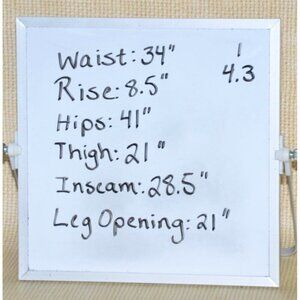 Waist: 34"
1
4.3
Rise: 8.5"
Hips: 41"
Thigh: 21"
Inseam: 28.5"
Leg Opening: 21"